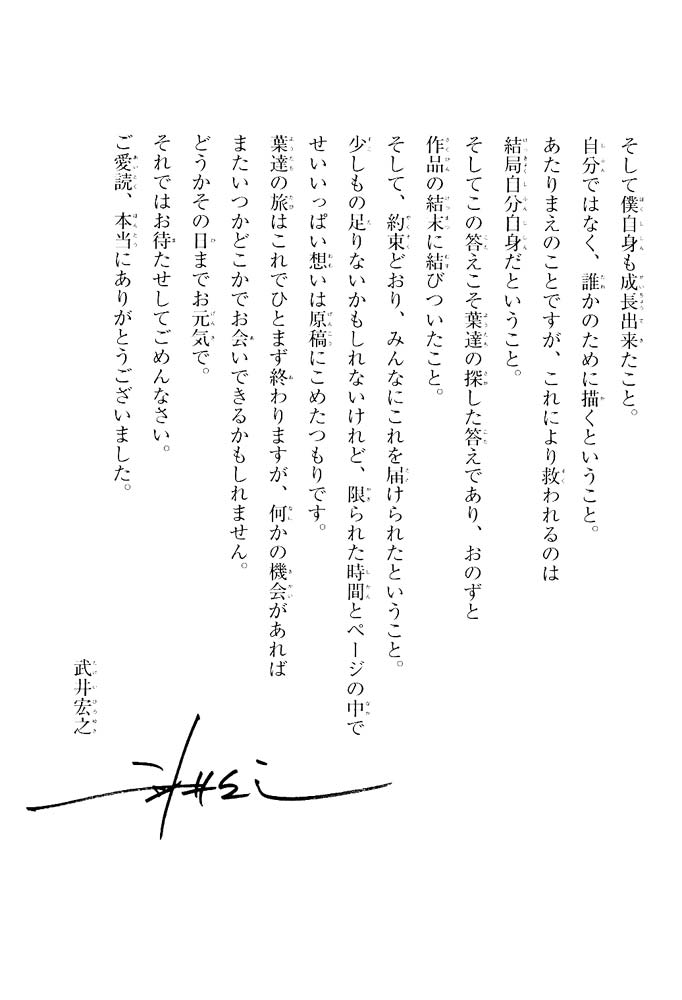 そして僕自身も成長出来たこと。
自分ではなく、誰かのために描くということ。
あたりまえのことですが、これにより救われるのは
結局自分自身だということ。
そしてこの答えこそ葉達の探した答えであり、おのずと
作品の結末に結びついたこと。
そして、約束どおり、みんなにこれを届けられたということ。
少しもの足りないかもしれないけれど、限られた時間とページの中で
せいいっぱい想いは原稿にこめたつもりです。
葉達の旅はこれでひとまず終わりますが、何かの機会があれば
またいつかどこかでお会いできるかもしれません。
どうかその日までお元気で。
それではお待たせしてごめんなさい。
ご愛読、本当にありがとうございました。
武井宏之